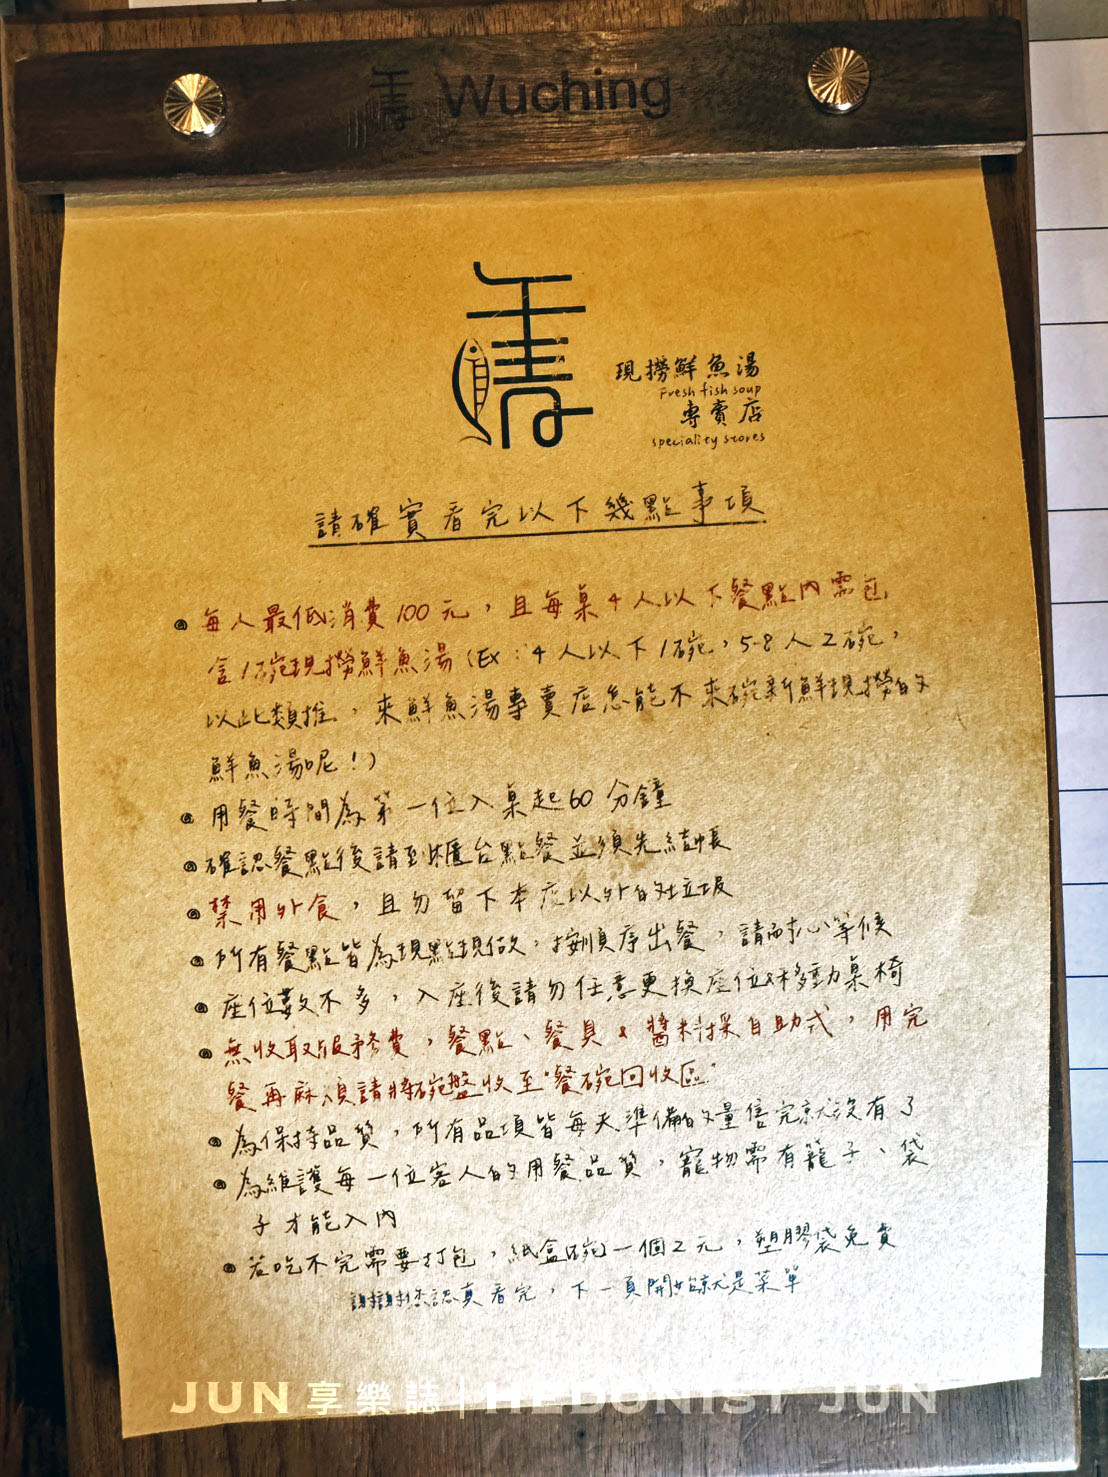 Wuching
現撈鮮魚湯
Fresh fish soup
專賣店
speciality stores
請確實看完以下幾點事項
每人最低消費100元，且每桌4人以下餐點內需包
含1碗現撈鮮魚湯（EX：4人以下1碗，5-8人2碗，
以此類推，來鮮魚湯專賣店怎能不來碗新鮮現撈的
鮮魚湯呢！）
用餐時間為第一位入桌起60分鐘
確認餐點後請到櫃台點餐並須先結帳
禁用外食，且勿留下本店以外的垃圾
所有餐點皆為現點現做，按順序出餐，請耐心等候
座位數不多，入座後請勿任意更換座位&移動桌椅
無收取服務費，餐點、餐具&醬料採自助式，用完
餐再麻煩請將碗盤收至"餐碗回收區"
為保持品質，所有品項皆每天準備的量售完就沒有了
為維護每一位客人的用餐品質，寵物需有籠子、袋
子才能入內
若吃不完需要打包，紙盒(碗)一個2元，塑膠袋免費
謝謝您認真看完，下一頁開始就是菜單
JUN享樂誌|HEDONIST JUN